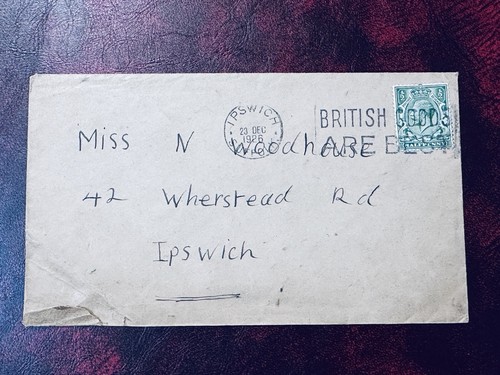 IPSWICH
23 DEC
1926
BRITISH GOODS
ARE BEST
HALFPENNY
Miss N Woodhouse
42 Wherstead Rd
Ipswich